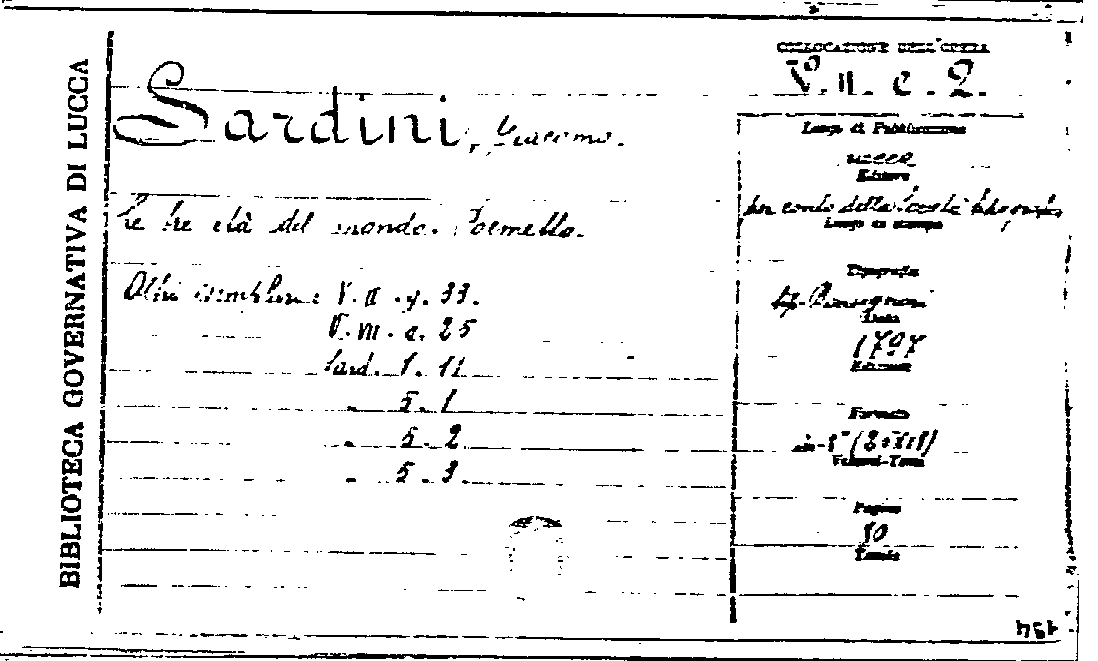 BIBLIOTECA GOVERNATIVA DI LUCCA
Sardini, Giacomo.
Le tre età del mondo. Poemetto.
Altri esemplari: V. II. g. 33.
V. VII. e. 25
Sard. 1. 11
" 5. 1
" 5. 2
" 5. 3
COLLOCAZIONE DELL'OPERA
V. II. e. 2.
Luogo di Pubblicazione
Editore
per conto della Società tipografica
Luogo di stampa
Tipografia
tip.
Data
1797
Edizione
Formato
in-8°
Volumi-Tomi
Pagine
80
Tavole